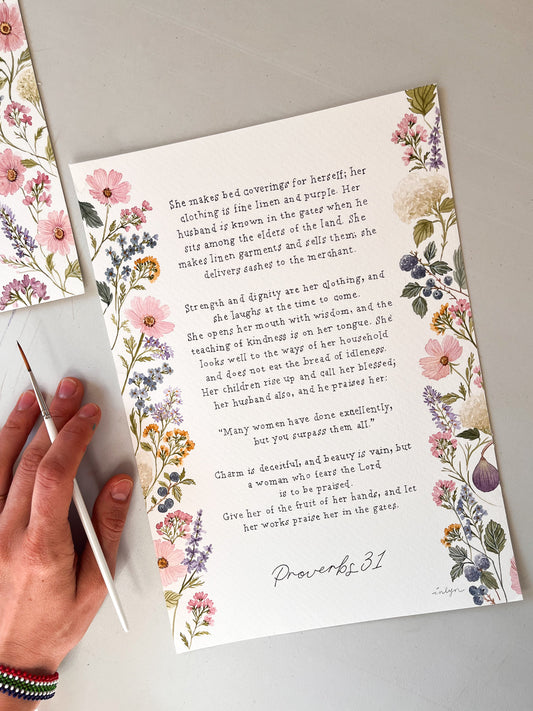 She makes bed coverings for herself; her
clothing is fine linen and purple. Her
husband is known in the gates when he
sits among the elders of the land. She
makes linen garments and sells them; she
delivers sashes to the merchant.
Strength and dignity are her clothing, and
she laughs at the time to come.
She opens her mouth with wisdom, and the
teaching of kindness is on her tongue. She
looks well to the ways of her household
and does not eat the bread of idleness.
Her children rise up and call her blessed;
her husband also, and he praises her:
“Many women have done excellently,
but you surpass them all.”
Charm is deceitful, and beauty is vain, but
a woman who fears the Lord
is to be praised.
Give her of the fruit of her hands, and let
her works praise her in the gates.
Proverbs 31
inlyn